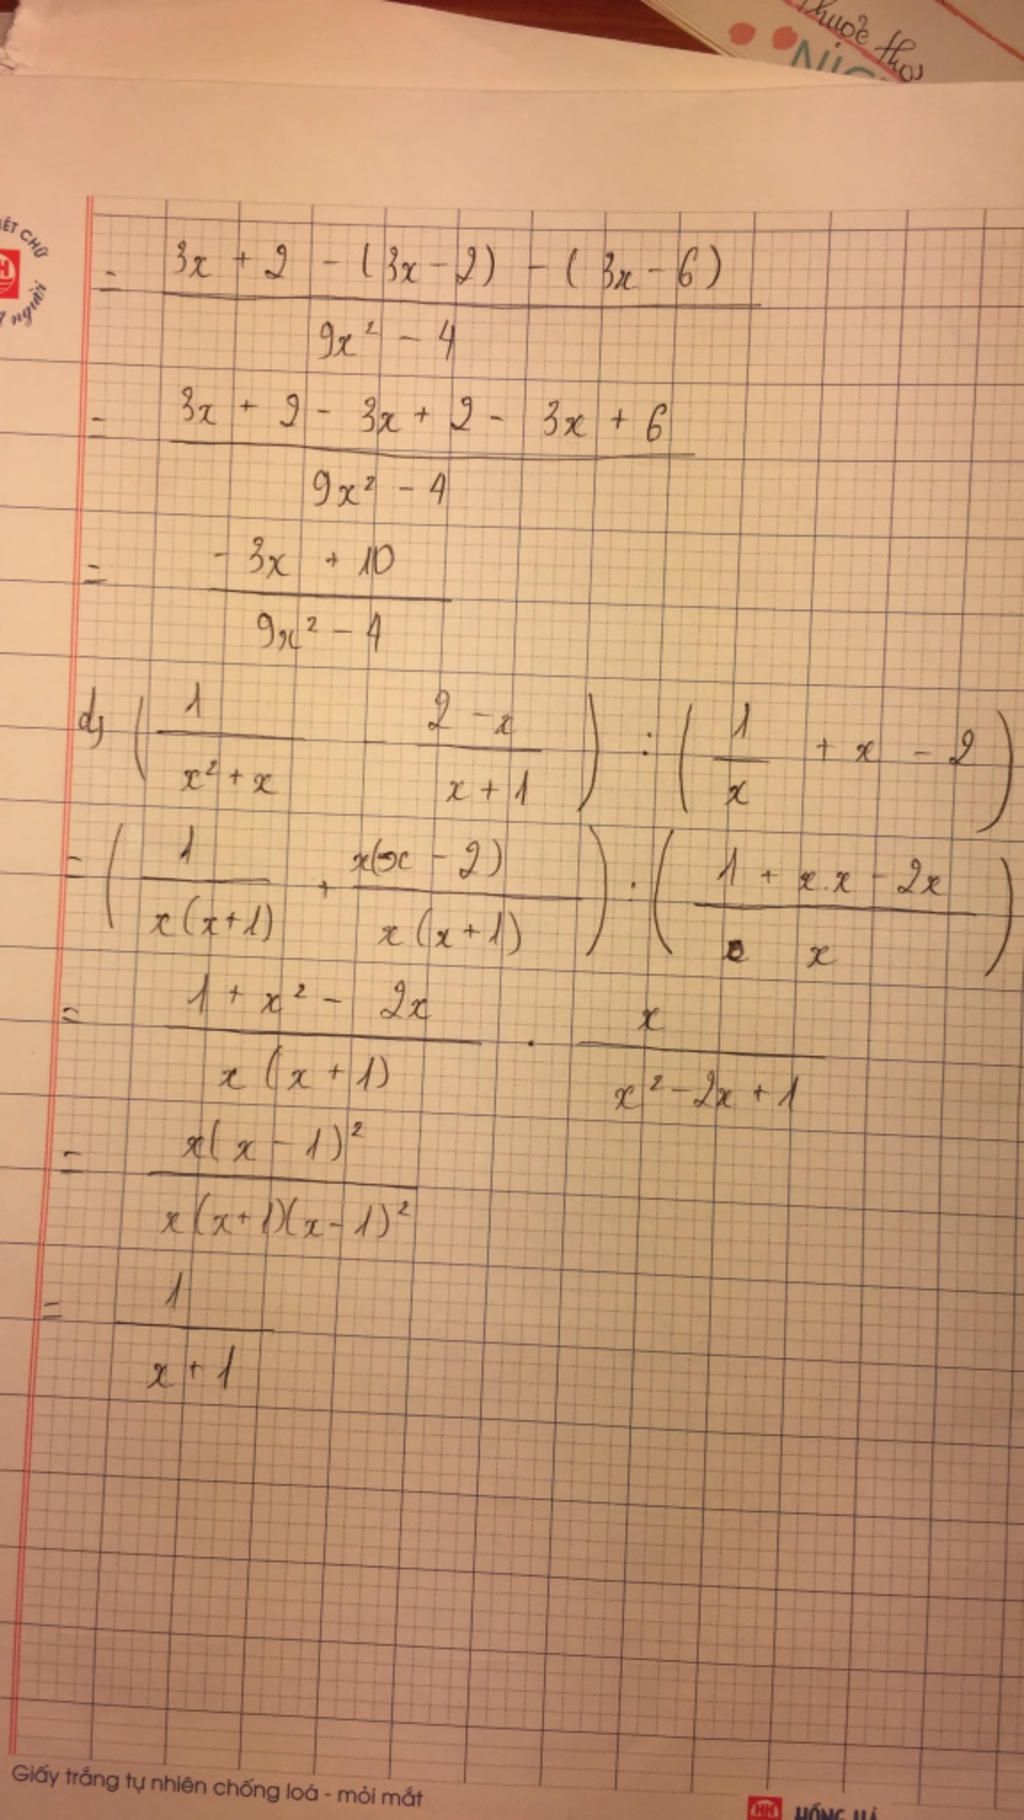 Thuốc thơ
NIC
ÉT CHỮ
người
= (3x + 2 - (3x - 2) - (3x - 6)) / (9x² - 4)
= (3x + 2 - 3x + 2 - 3x + 6) / (9x² - 4)
= (-3x + 10) / (9x² - 4)
d, (1 / (x² + x) - (2 - x) / (x + 1)) : (1 / x + x - 2)
= (1 / (x(x+1)) + x(x - 2) / (x(x+1))) : ((1 + x.x - 2x) / x)
= (1 + x² - 2x) / (x(x+1)) . x / (x² - 2x + 1)
= x(x - 1)² / (x(x+1)(x-1)²)
= 1 / (x + 1)
Giấy trắng tự nhiên chống loá - mỏi mắt
HH HỒNG HÀ